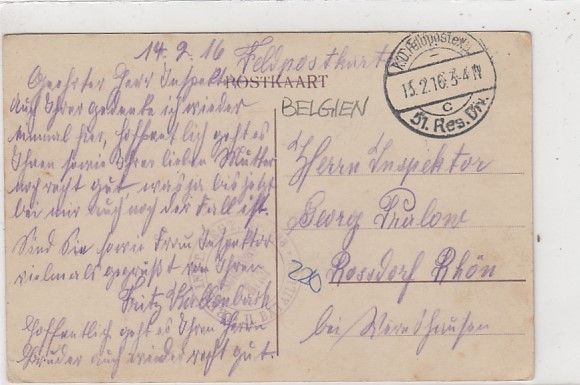 14.2.16 Feldpostkarte
POSTKAART
Geehrter Herr Inspektor
Auch Ihrer gedenke ich wieder
einmal hier, hoffentlich geht es
Ihnen sowie Ihrer lieben Mutter
noch recht gut was ja bis jetzt
bei mir auch noch der Fall ist.
Sind Sie sowie Frau Inspektor
vielmals gegrüßt von Ihren
Fritz
Hoffentlich geht es Ihren Herrn
Bruder auch wieder recht gut.
BELGIEN
K.D. Feldpostexp.
15.2.16. 3-4 N
c
51. Res. Div.
Herrn Inspektor
Georg
Rossdorf Rhön
bei Wernshausen
220